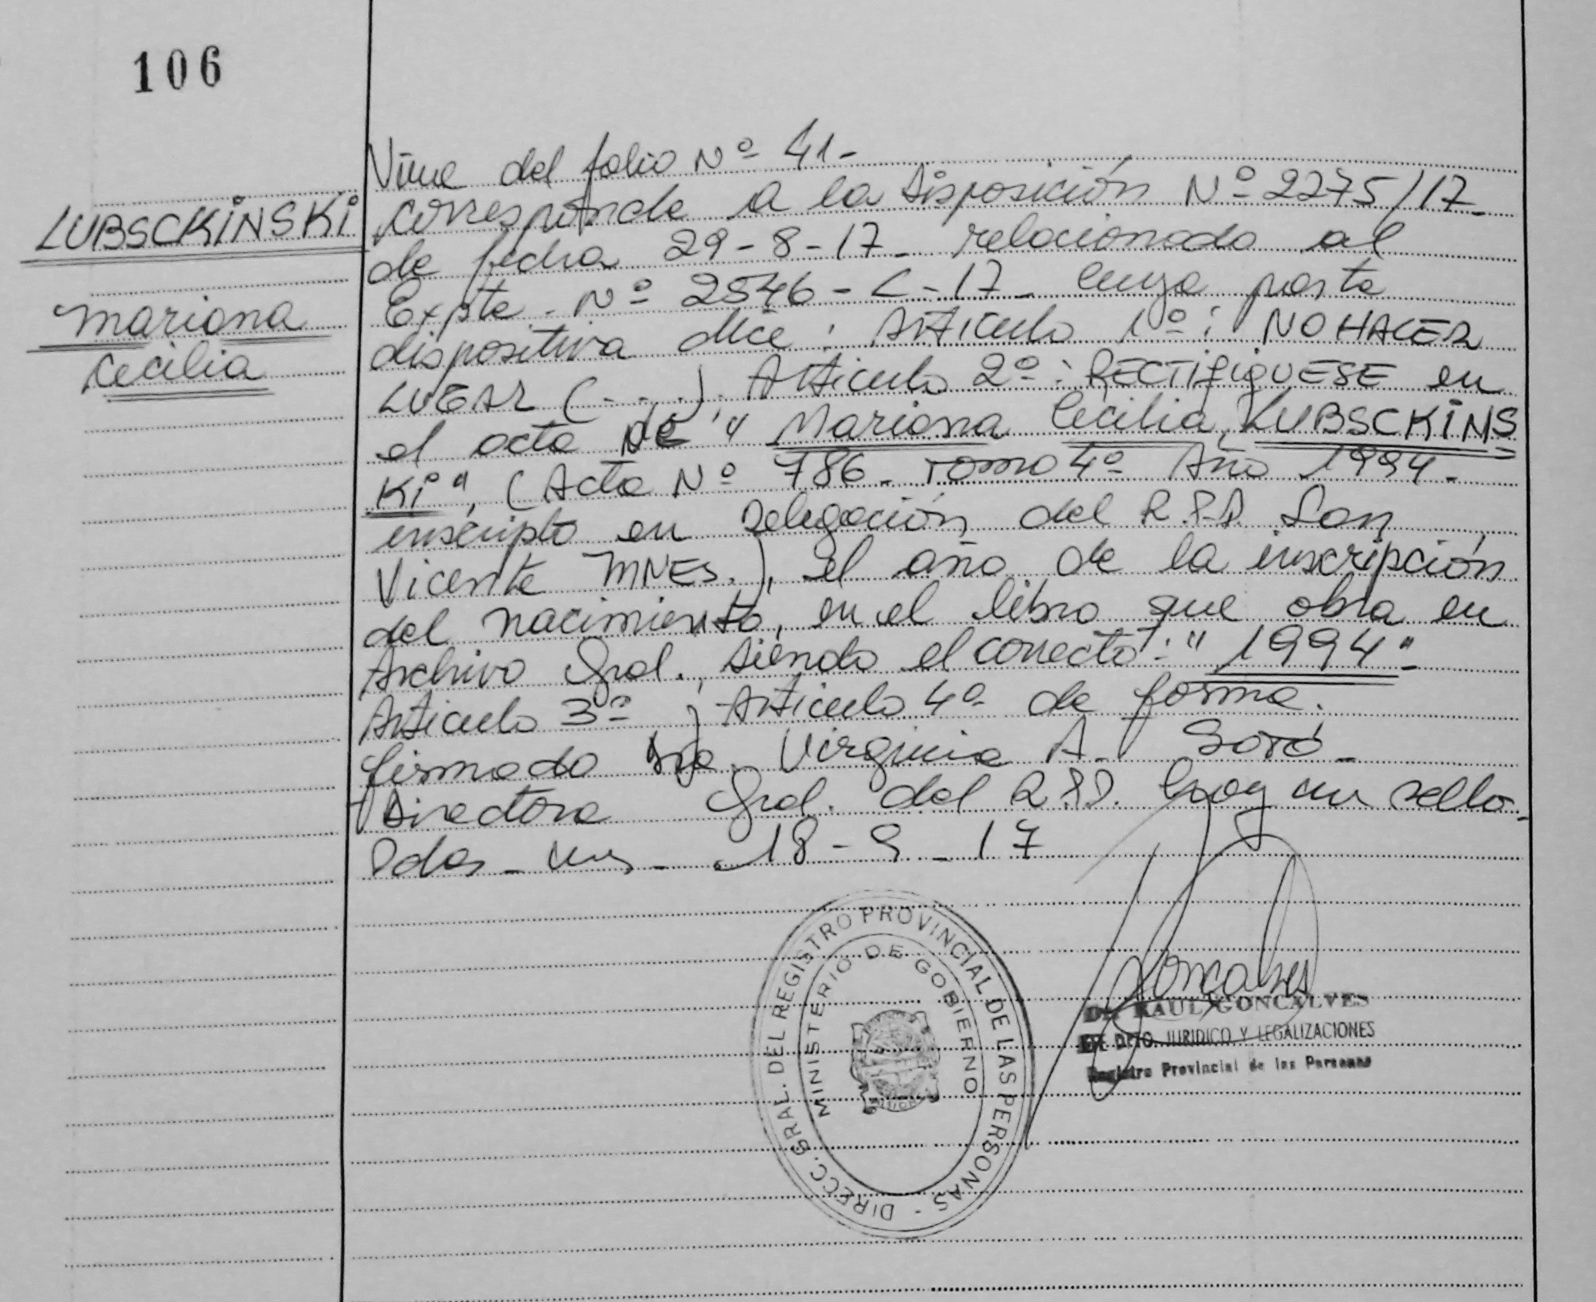 106
LUBSCKINSKI
Mariana
Cecilia
Viene del folio Nº 41-
corresponde a la Disposición Nº 2275/17-
de fecha 29-8-17- relacionada al
Expte. Nº 2546-C-17- cuya parte
dispositiva dice: Artículo 1º: NO HACER
LUGAR (...). Artículo 2º: RECTIFIQUESE en
el acta de " Mariana Cecilia LUBSCKINS
KI", (Acta Nº 786- Tomo 4º Año 1994-
inscripto en Delegación del R.P.P. San
Vicente MNES.), el año de la inscripción
del nacimiento, en el libro que obra en
Archivo Gral., siendo el correcto: "1994"-
Artículo 3º y Artículo 4º de forma.
firmado Dra. Virginia A. Soto-
Directora Gral. del R.P.P. Hay un sello-
Pdas- Mns- 18-9-17
DIRECC. GRAL. DEL REGISTRO PROVINCIAL DE LAS PERSONAS -
MINISTERIO DE GOBIERNO
Goncalves
Dr. RAUL GONCALVES
DPTO. JURIDICO Y LEGALIZACIONES
Registro Provincial de las Personas